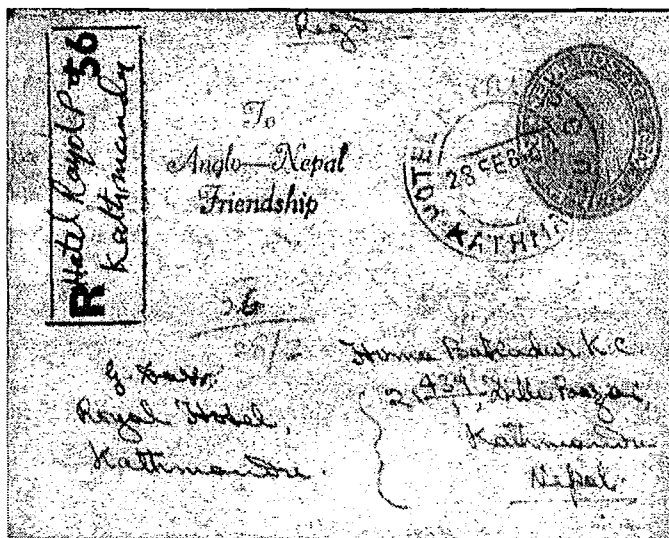 Regd
R Hotel Royal P 56
Kathmandu
To
Anglo—Nepal
Friendship
HOTEL
28 FEB
KATHM
POSTAGE
56
28/2
Royal Hotel,
Kathmandu.
Homa Bahadur K.C.
2/439, Dilli Bazar,
Kathmandu
Nepal.